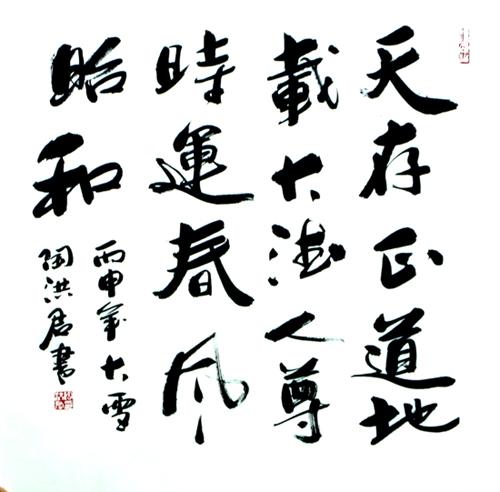 天存正道地
載大德人尊
時運春風
昭和
丙申年大雪
陶洪君書